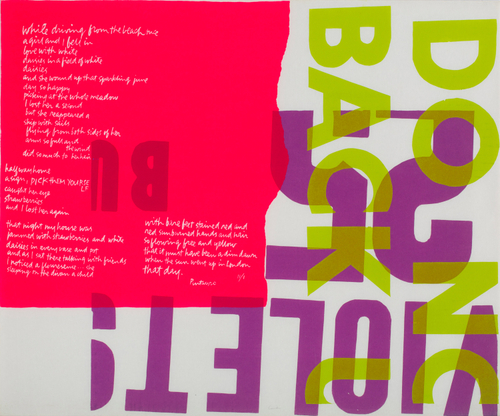 while driving from the beach
a girl and I fell in
love with white
daisies in a field of white
daisies
and she wound up that sparkling pure
day so happy
picking at the whole meadow
I lost her a second
but she reappeared a
ship with sails
flying from both sides of her
arms so full and
the wind
did so much to her hair
halfway home
a sign, PICK THEM YOURSE
LF
caught her eye
strawberries
and I lost her again
that night my house was
jammed with strawberries and white
daisies in every vase and pot
and as I sat there talking with friends
I noticed a
sleeping on the divan a child
with bare feet stained red and
red sunburned hands and hair
so flowing free and yellow
that it must have been a dim dawn
when the sun came up in London
that day.
DO NC
BACK U
BU
VIOLETS